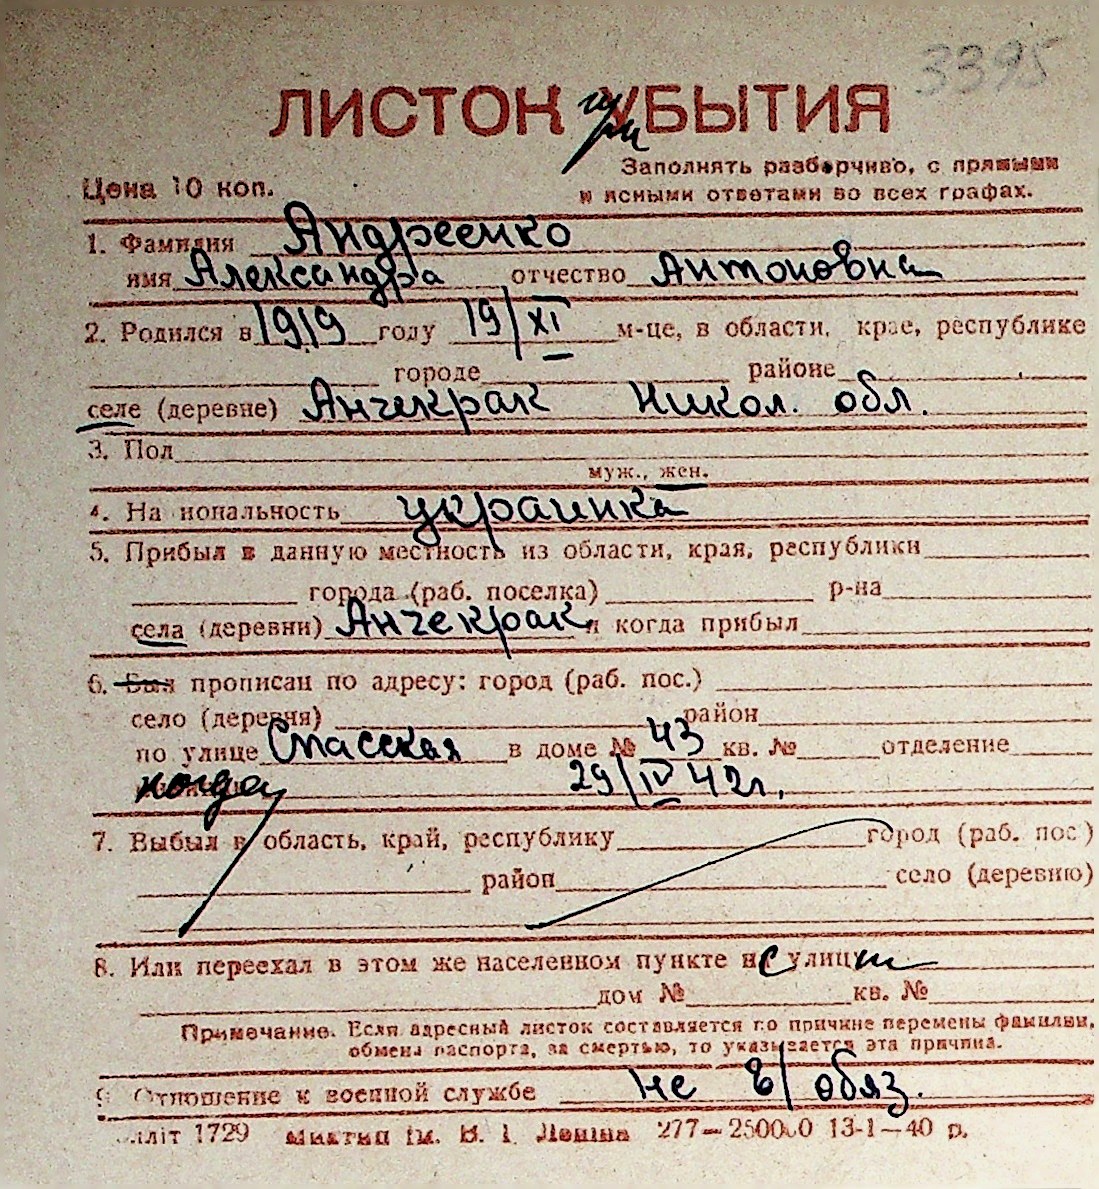 3395
ЛИСТОК при УБЫТИЯ
Заполнять разборчиво, с прямыми
Цена 10 коп.
и ясными ответами во всех графах.
1. Фамилия Андреенко
имя Александра отчество Антоновна
2. Родился в 1919 году 19/XI м-це, в области, крае, республике
городе районе
селе (деревне) Анчекрак Никол. обл.
3. Пол
муж., жен.
4. На иональность украинка
5. Прибыл в данную местность из области, края, республики
города (раб. поселка) р-на
села (деревни) Анчекрак и когда прибыл
6. Был прописан по адресу: город (раб. пос.)
село (деревня) район
по улице Спасская в доме № 43 кв. № отделение
когда 29/IV 42г.
7. Выбыл в область, край, республику город (раб. пос )
район село (деревню)
8. Или переехал в этом же населенном пункте с улицы
дом № кв. №
Примечание. Если адресный листок составляется по причине перемены фамилии,
обмена паспорта, за смертью, то указывается эта причина.
9 Отношение к военной службе не в/обяз.
лліт 1729 ім. В. І. Леніна 277—250000 13-1—40 р.